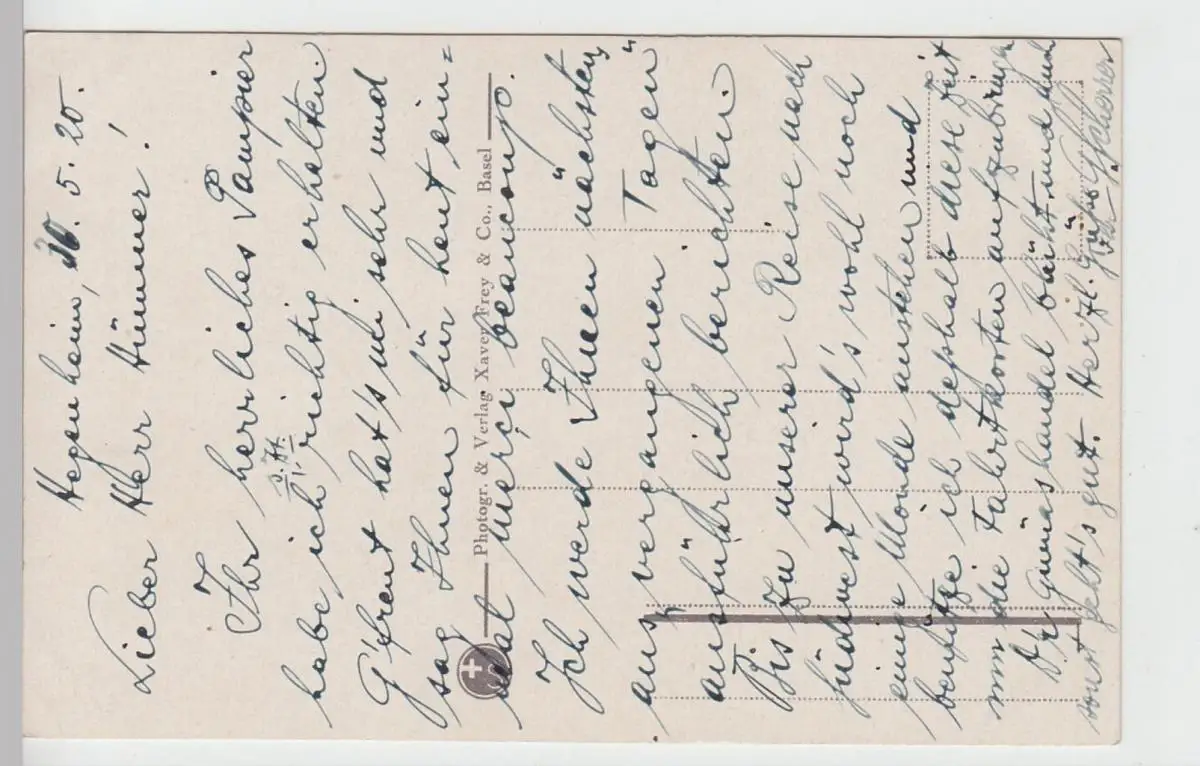 Hegenheim, 30. 5. 20.
Lieber Herr Hümmer!
Ihr herrliches Panpier
habe ich richtig erhalten.
G'freut hat's mi sehr und
sag Ihnen für heut ein=
mal merçi beaucoup.
Ich werde Ihnen nächsten
Tagen
aus vergangenen
ausführlich berichten.
Bis zu unserer Reise nach
Südwest wird's wohl noch
einige Monde anstehen und
benütze ich deßhalb diese Zeit
um die Fahrtkosten aufzubringen
D'r Gmüashandel blüht und auch
sonst geht's gut. Herzl. Grüße
Ihr Scherer
Photogr. & Verlag Xaver Frey & Co., Basel